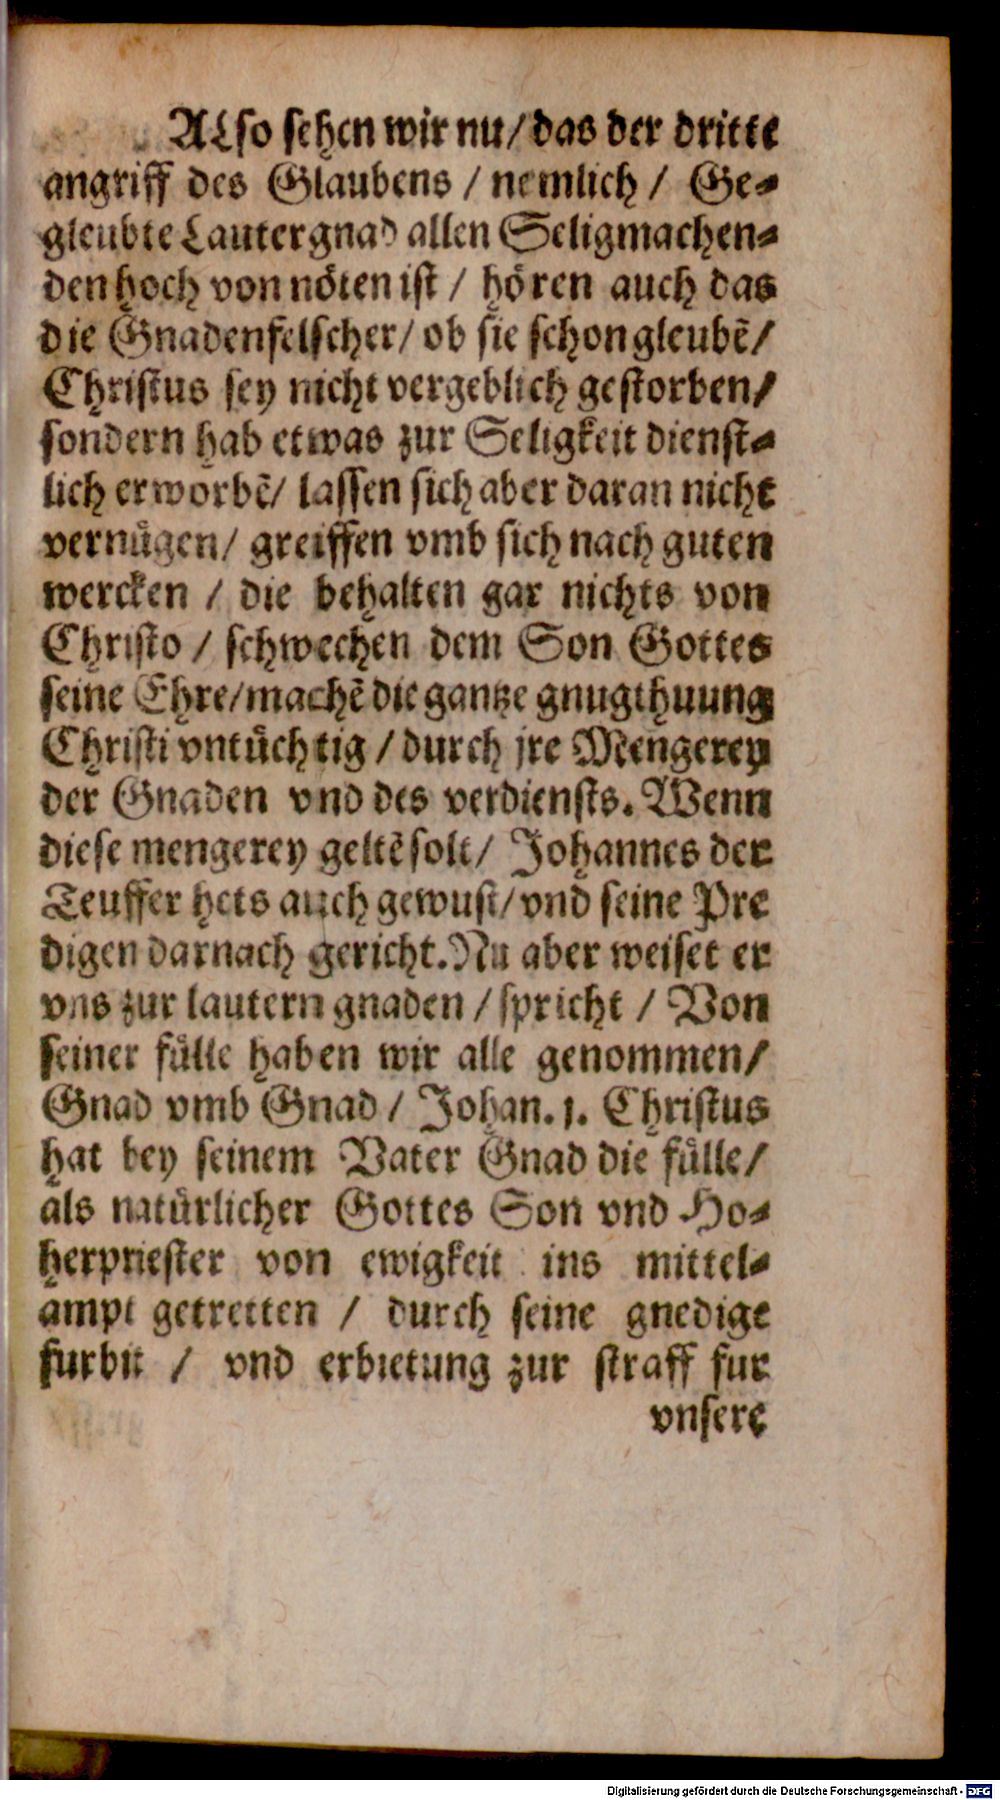 ALso sehen wir nu/ das der dritte
angriff des Glaubens / nemlich / Ge-
gleubte Lautergnad allen Seligmachen-
den hoch von nöten ist / hören auch das
die Gnadenfelscher/ ob sie schon gleubẽ/
Christus sey nicht vergeblich gestorben/
sondern hab etwas zur Seligkeit dienst-
lich erworbẽ/ lassen sich aber daran nicht
vernügen/ greiffen vmb sich nach guten
wercken / die behalten gar nichts von
Christo / schwechen dem Son Gottes
seine Ehre/machẽ die gantze gnugthuung
Christi vntüchtig / durch jre Mengerey
der Gnaden vnd des verdiensts. Wenn
diese mengerey geltẽ solt/ Johannes der
Teuffer hets auch gewust/ vnd seine Pre
digen darnach gericht. Nu aber weiset er
vns zur lautern gnaden / spricht / Von
seiner fülle haben wir alle genommen/
Gnad vmb Gnad / Johan. 1. Christus
hat bey seinem Vater Gnad die fülle/
als natürlicher Gottes Son vnd Ho-
herpriester von ewigkeit ins mittel-
ampt getretten / durch seine gnedige
furbit / vnd erbietung zur straff fur
vnsere
Digitalisierung gefördert durch die Deutsche Forschungsgemeinschaft - DFG